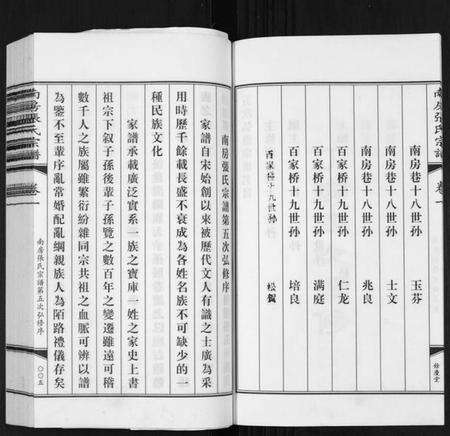 南房張氏宗譜
卷一
南房巷十八世孙 玉芬
南房巷十八世孙 士文
南房巷十八世孙 兆良
百家桥十九世孙 仁龙
百家桥十九世孙 满庭
百家桥十九世孙 培良
百家桥十九世孙 松賀
南房張氏宗譜第五次弘修序
家譜自宋始創以來被歷代文人有識之士廣為采
用時歷千餘載長盛不衰成為各姓名族不可缺少的一
種民族文化
家譜承載廣泛實系一族之寶庫一姓之家史上書
祖宗下叙子孫後輩子孫覽之數百年之變遷雖遠可稽
數千人之族屬雖繁衍紛雜同宗共祖之血脈可辨以譜
為鑒不至輩序亂常婚配亂綱親族人為陌路禮儀存矣
南房張氏宗譜
卷一
南房張氏宗譜第五次弘修序
〇〇五